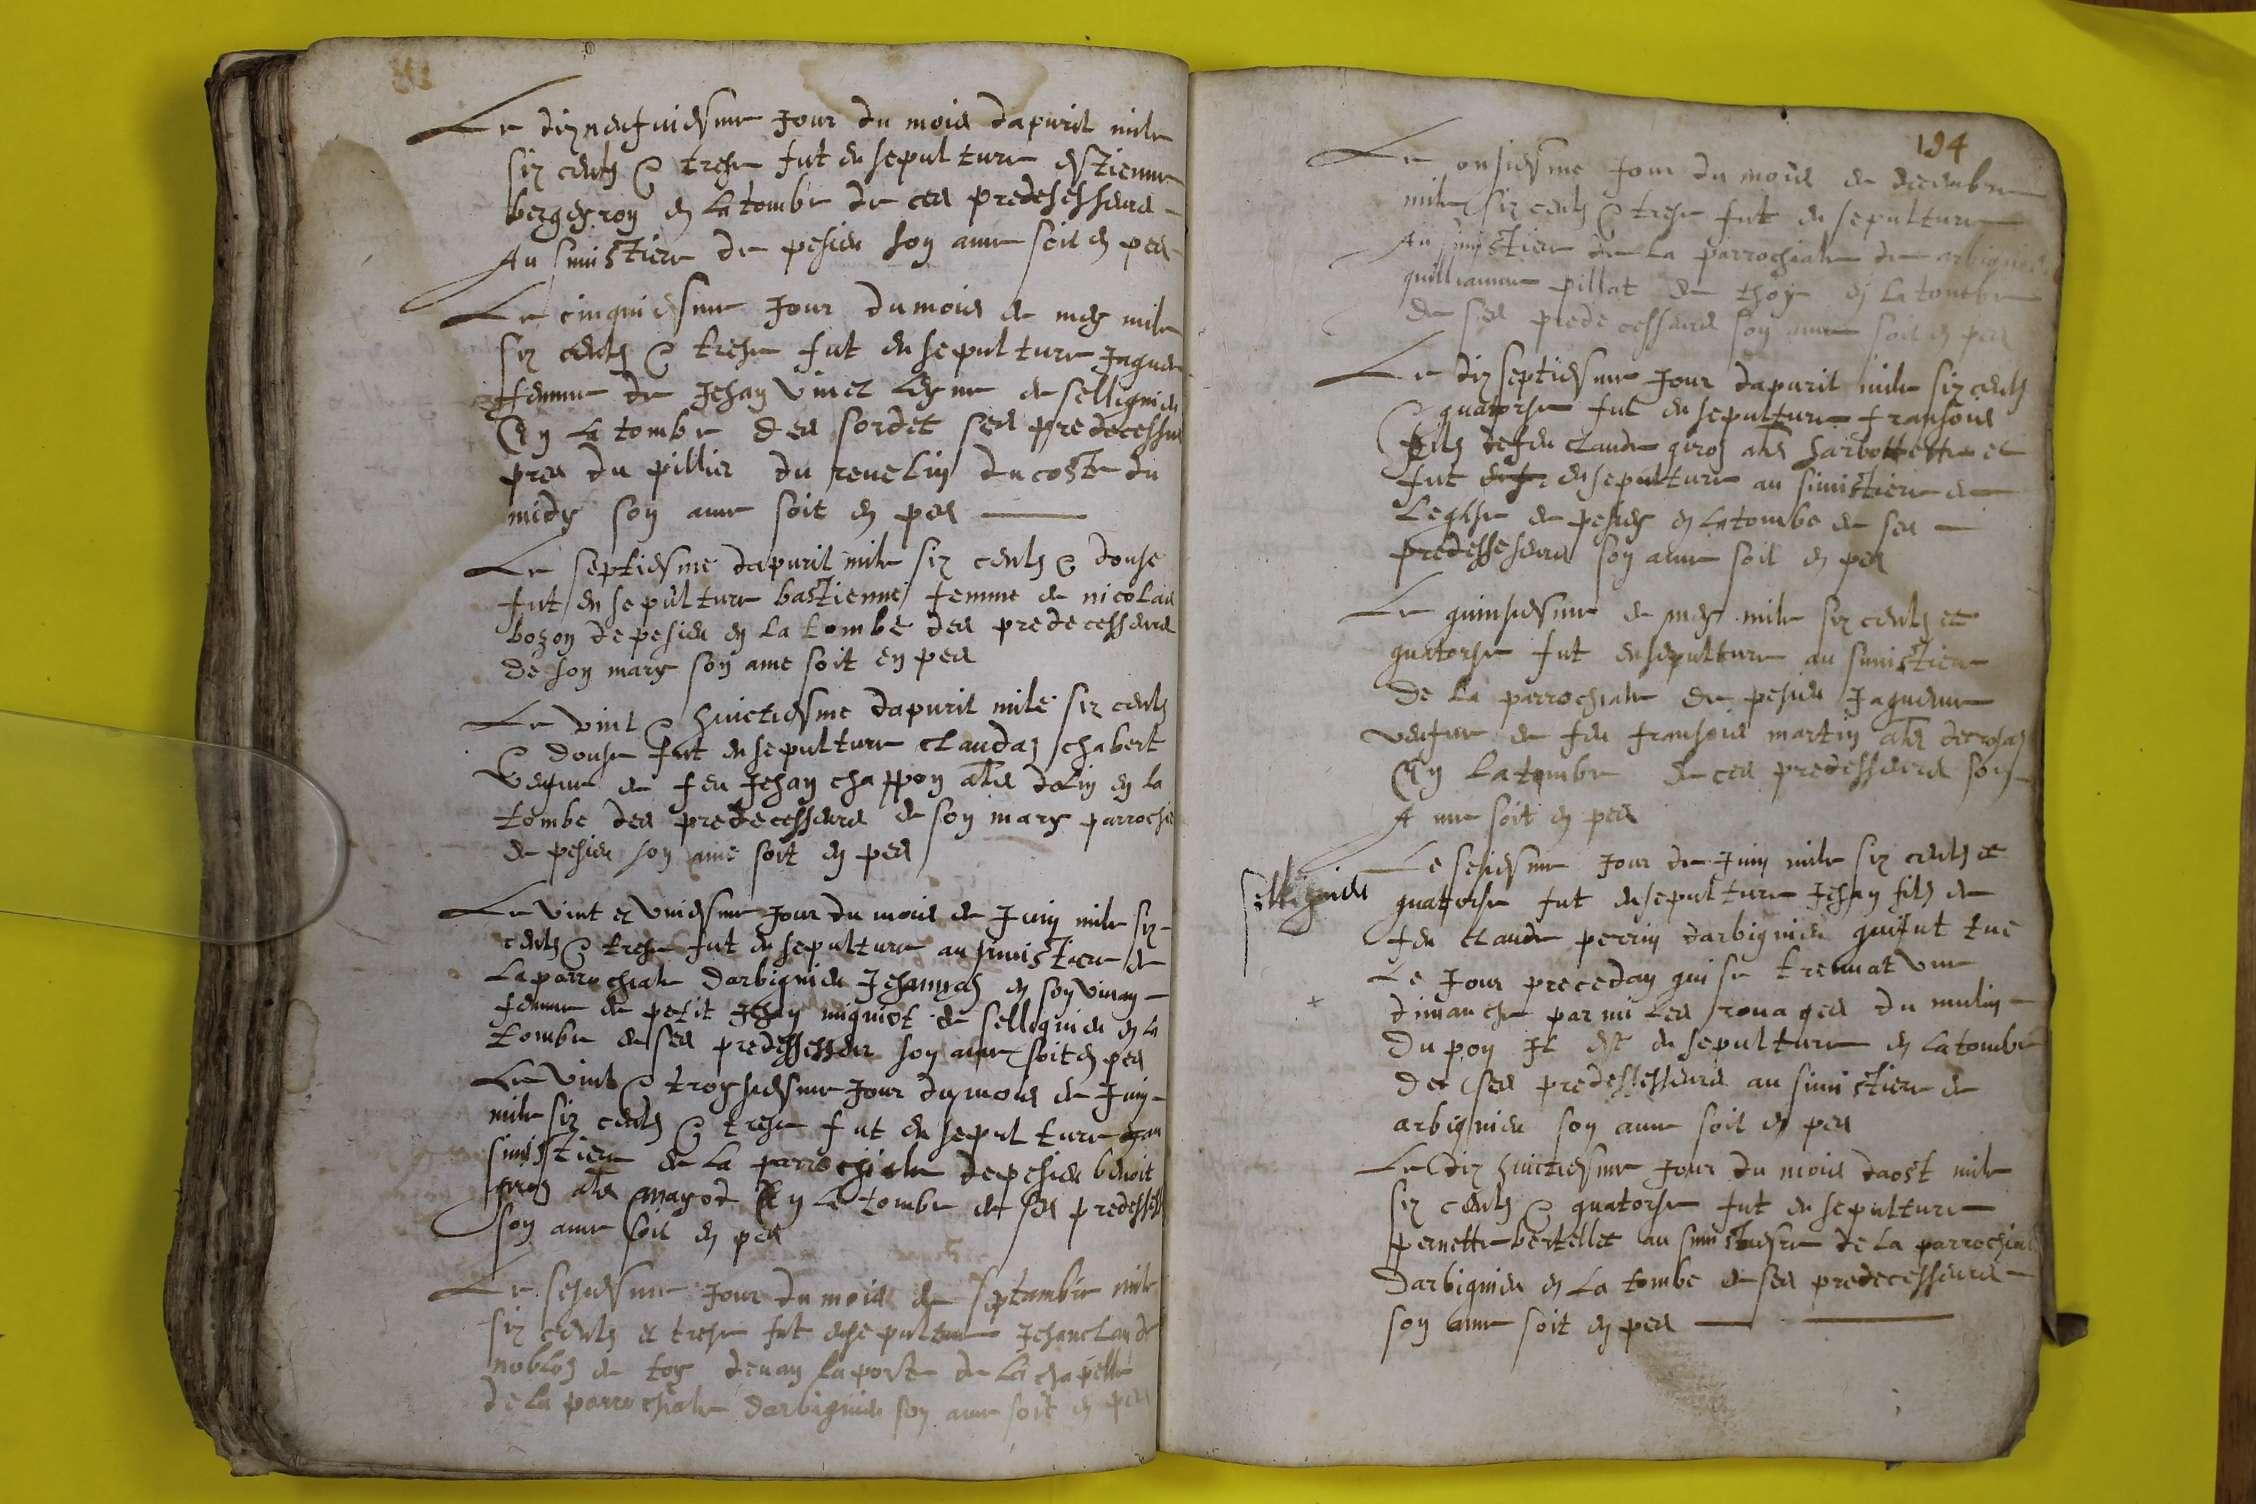 Le dizneufviesme Jour du mois dapvril mile
six centz & trese fut ensepulture estienne
bergeyron en la tombe de ces predesesseurs
Au simistiere de pesieu son ame soit en pes
Le cinquiesme Jour du mois de mey mile
six centz & trese fut ensepulture Jaque
femme de Jehan vivet Leyne de sellignieu
En la tombe des sordet ses predecessurs
pres du pillier du revelin du coste du
midy son ame soit en pes
Le septiesme dapvril mile six centz & douse
fut ensepulture bastienne femme de nicolas
bozon de pesieu en la tombe des predecesseurs
de son mary son ame soit en pes
Le vint & huictiesme dapvril mile six centz
& douse fut ensepulture claudaz chabert
Vefve de feu Jehan chappon als dolin en la
tombe des predecesseurs de son mary parroche
de pesieu son ame soit en pes
Le vint et uniesme Jour du mois de Juin mile six
centz & trese fut ensepulture au simistiere de
La parrochiale darbignieu Jehannaz en son vivan
femme de petit Jehan miguiet de sellignieu en la
tombe de ses predessesseur son ame soit en pes
Le vint & troysiesme Jour du mois de Juin
mile six centz & trese fut ensepulture au
simistiere de la parrochiale de pesieu benoit
groz als mayod En la tombe de ses predessess
son ame soit en pes
Le sesiesme Jour du mois de septambre mile
six centz et trese fut ensepulture Jehanclaude
nobloz de toy devan la porte de la chapelle
de la parrochiale darbignieu son ame soit en pes
194
Le onsiesme Jour du mois de decembre
mile six centz & trese fut ensepulture
Au simistiere de la parrochiale de arbignieu
guilliaume pillat de thoy en la tombe
de ses predecesseurs son ame soit en pes
Le dix septiesme Jour dapvril mile six centz
& quatorse fut ensepulture fransois
filz de feu claude geroz als harbottette et
fut ensepulture au simistiere de
Leglise de pesieu en la tombe de ses
predessesseurs son ame soit en pes
Le quinsiesme de mey mile six centz et
quatorse fut ensepulture au simistiere
de la parrochiale de pesieu Jaqueme
vefve de feu fransois martin als decrosaz
En la tombe de ces predesseurs son
Ame soit en pes
sellignieu
Le sesiesme Jour de Juin mile six centz et
quatorse fut ensepulture Jehan filz de
feu claude perrin darbignieu qui fut tue
Le Jour precedan qui se treuvat une
dimanche par mi les rouages du mulin
du pon Il est ensepulture en la tombe
de ses predessesseurs au simistiere de
arbignieu son ame soit en pes
Le dix huictiesme Jour du mois daost mile
six centz & quatorse fut ensepulture
pernette bertellet au simistiesre de la parrochiale
darbignieu en la tombe de ses predecesseurs
son ame soit en pes